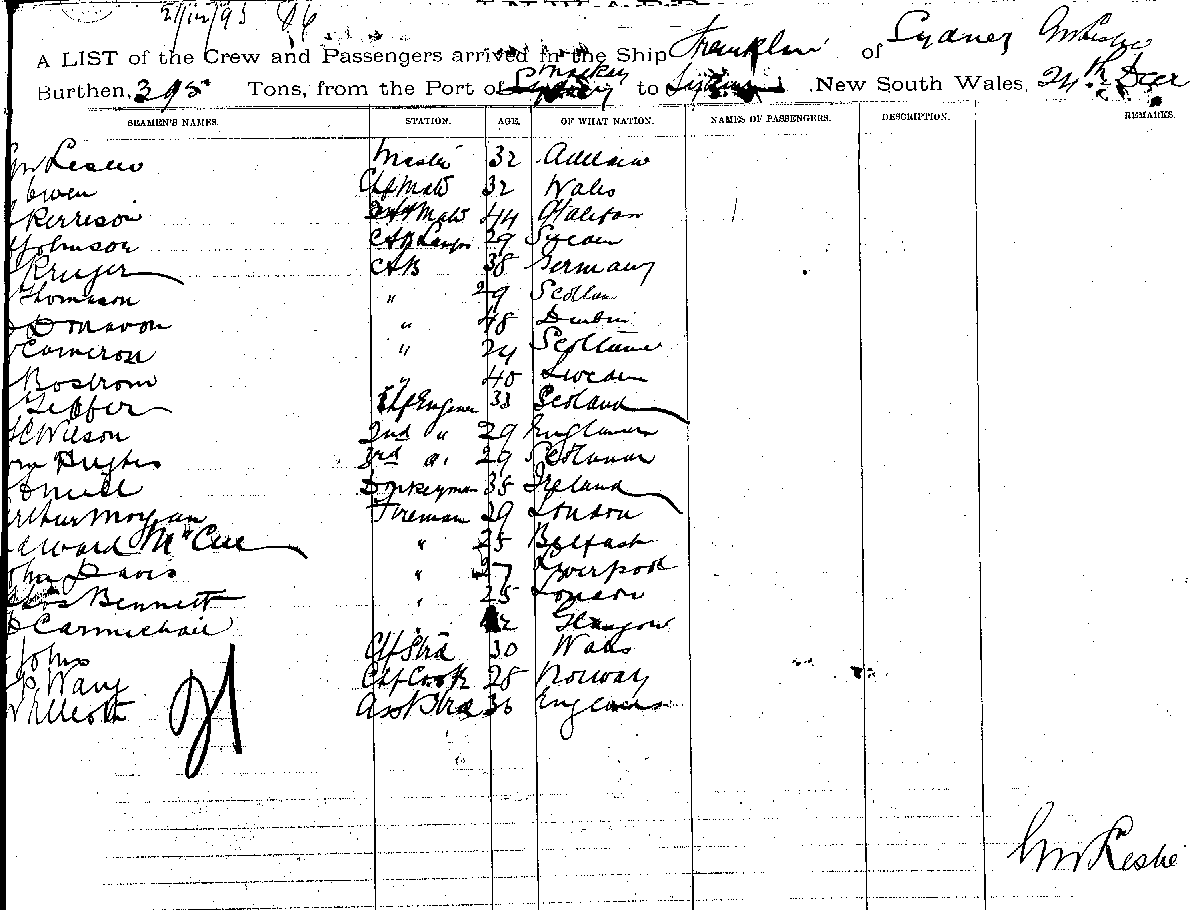 21/12/93 86
A LIST of the Crew and Passengers arrived in the Ship Franklin of Sydney GW Leslie
Burthen, 395 Tons, from the Port of Mackay to Sydney New South Wales, 24th Decr
SEAMEN'S NAMES. STATION. AGE. OF WHAT NATION. NAMES OF PASSENGERS. DESCRIPTION. REMARKS.
GW Leslie Master 32
Owen Chf Mate 32 Wales
Kerrison 2nd Mate 44
Johnson AB Lamps 29 Sweden
Kruger AB 38 Germany
Thomson " 29 Scotlan
Donavon " 48
Cameron " 24 Scotland
Bostrom " 40 Sweden
Chf Engineer 33 Scotland
Wilson 2nd " 29 England
Hughes 3rd " 29 Scotland
Donkeyman 35 Ireland
Arthur Morgan Fireman 29 London
Edward McCue " 25 Belfast
John Davis " 27 Liverpool
Bennett " 25 London
Carmichail " Glasgow
Johns Chf Strd 30 Wales
Wang Chf Cook 28 Norway
Asst Strd 36 England
21
GW Leslie